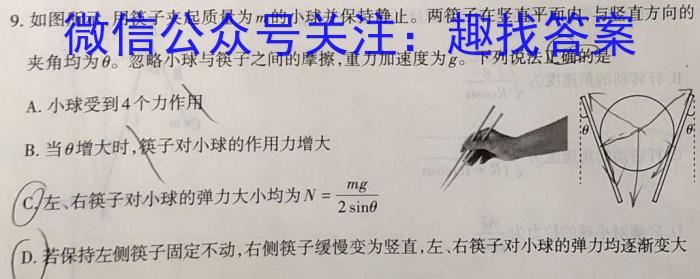 9. 如图所示，用筷子夹起质量为m的小球并保持静止。两筷子在竖直平面内，与竖直方向的
微信公众号关注：趣找答案
夹角均为θ。忽略小球与筷子之间的摩擦，重力加速度为g。下列说法正确的是
A. 小球受到4个力作用
B. 当θ增大时，筷子对小球的作用力增大
C. 左、右筷子对小球的弹力大小均为N = mg / 2 sinθ
D. 若保持左侧筷子固定不动，右侧筷子缓慢变为竖直，左、右筷子对小球的弹力均逐渐变大
θ θ